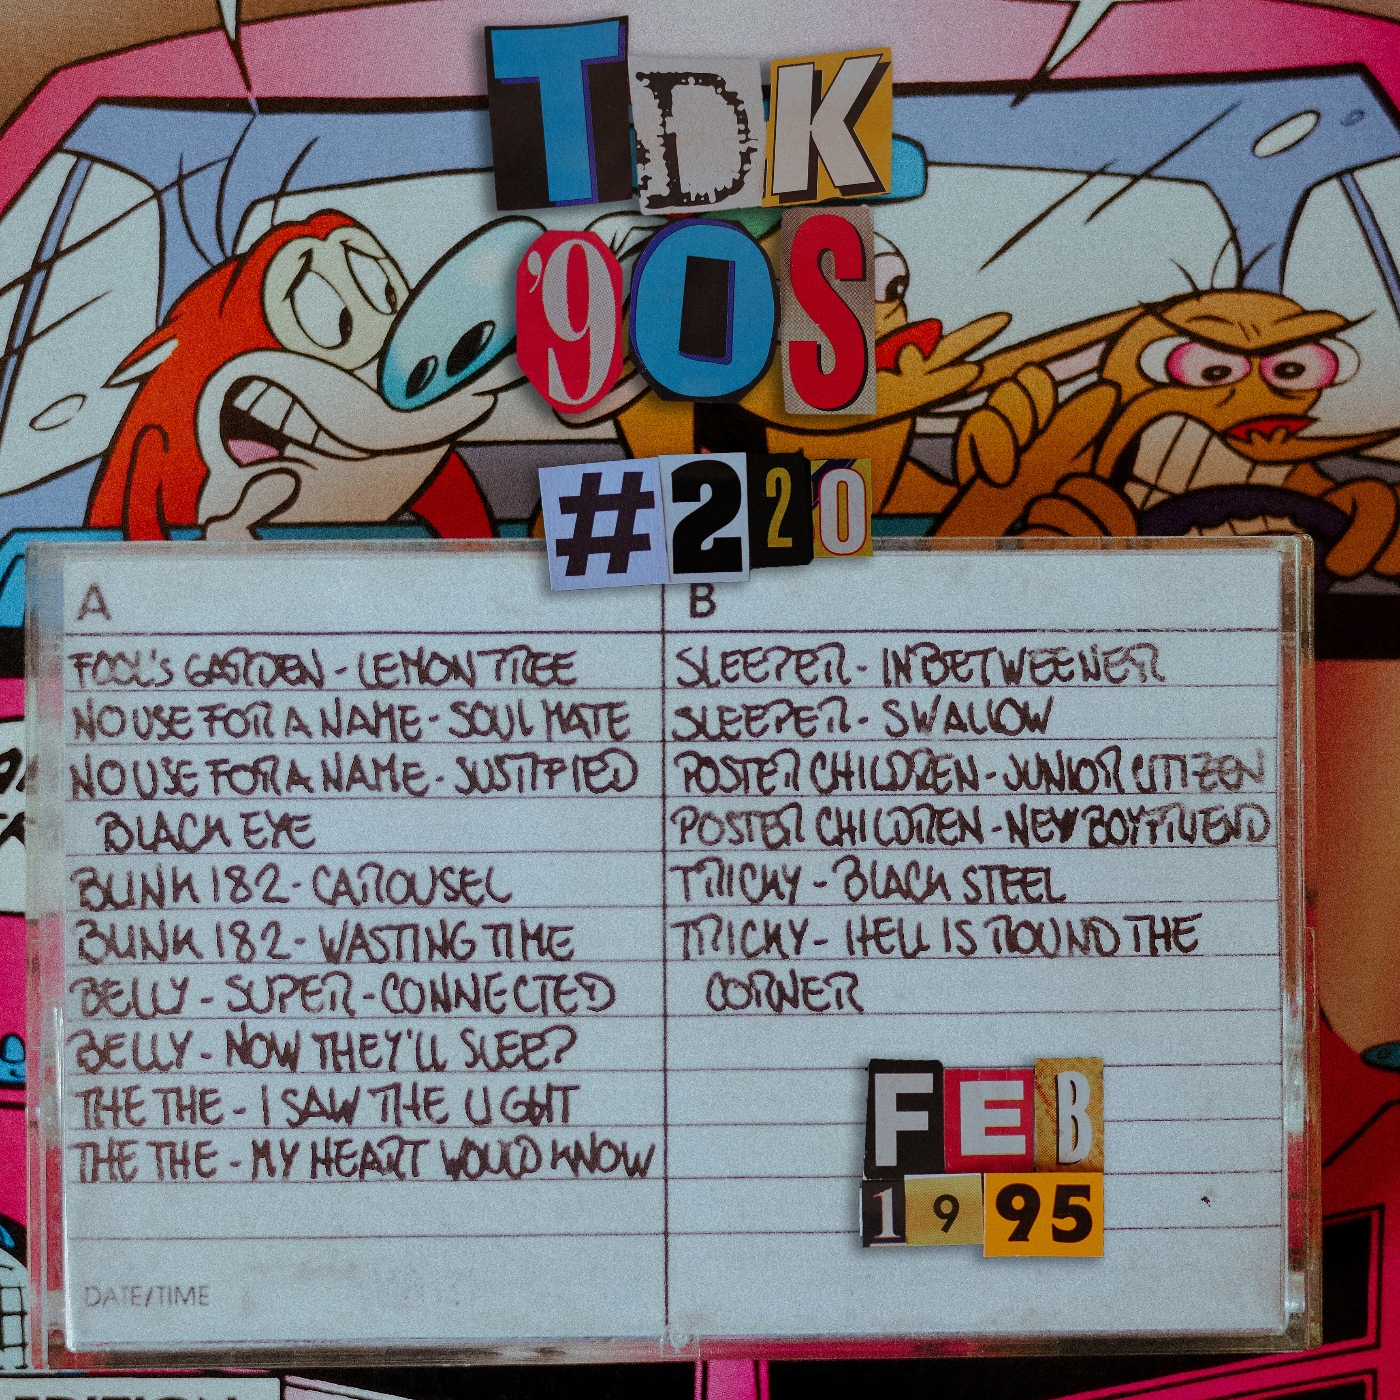 TDK
'90S
#220
A
FOOL'S GARDEN - LEMON TREE
NO USE FOR A NAME - SOUL MATE
NO USE FOR A NAME - JUSTIFIED
BLACK EYE
BLINK 182 - CAROUSEL
BLINK 182 - WASTING TIME
BELLY - SUPER-CONNECTED
BELLY - NOW THEY'LL SLEEP
THE THE - I SAW THE LIGHT
THE THE - MY HEART WOULD KNOW
DATE/TIME
B
SLEEPER - INBETWEENER
SLEEPER - SWALLOW
POSTER CHILDREN - JUNIOR CITIZEN
POSTER CHILDREN - NEW BOYFRIEND
TRICKY - BLACK STEEL
TRICKY - HELL IS ROUND THE
CORNER
FEB
1995
EDITION